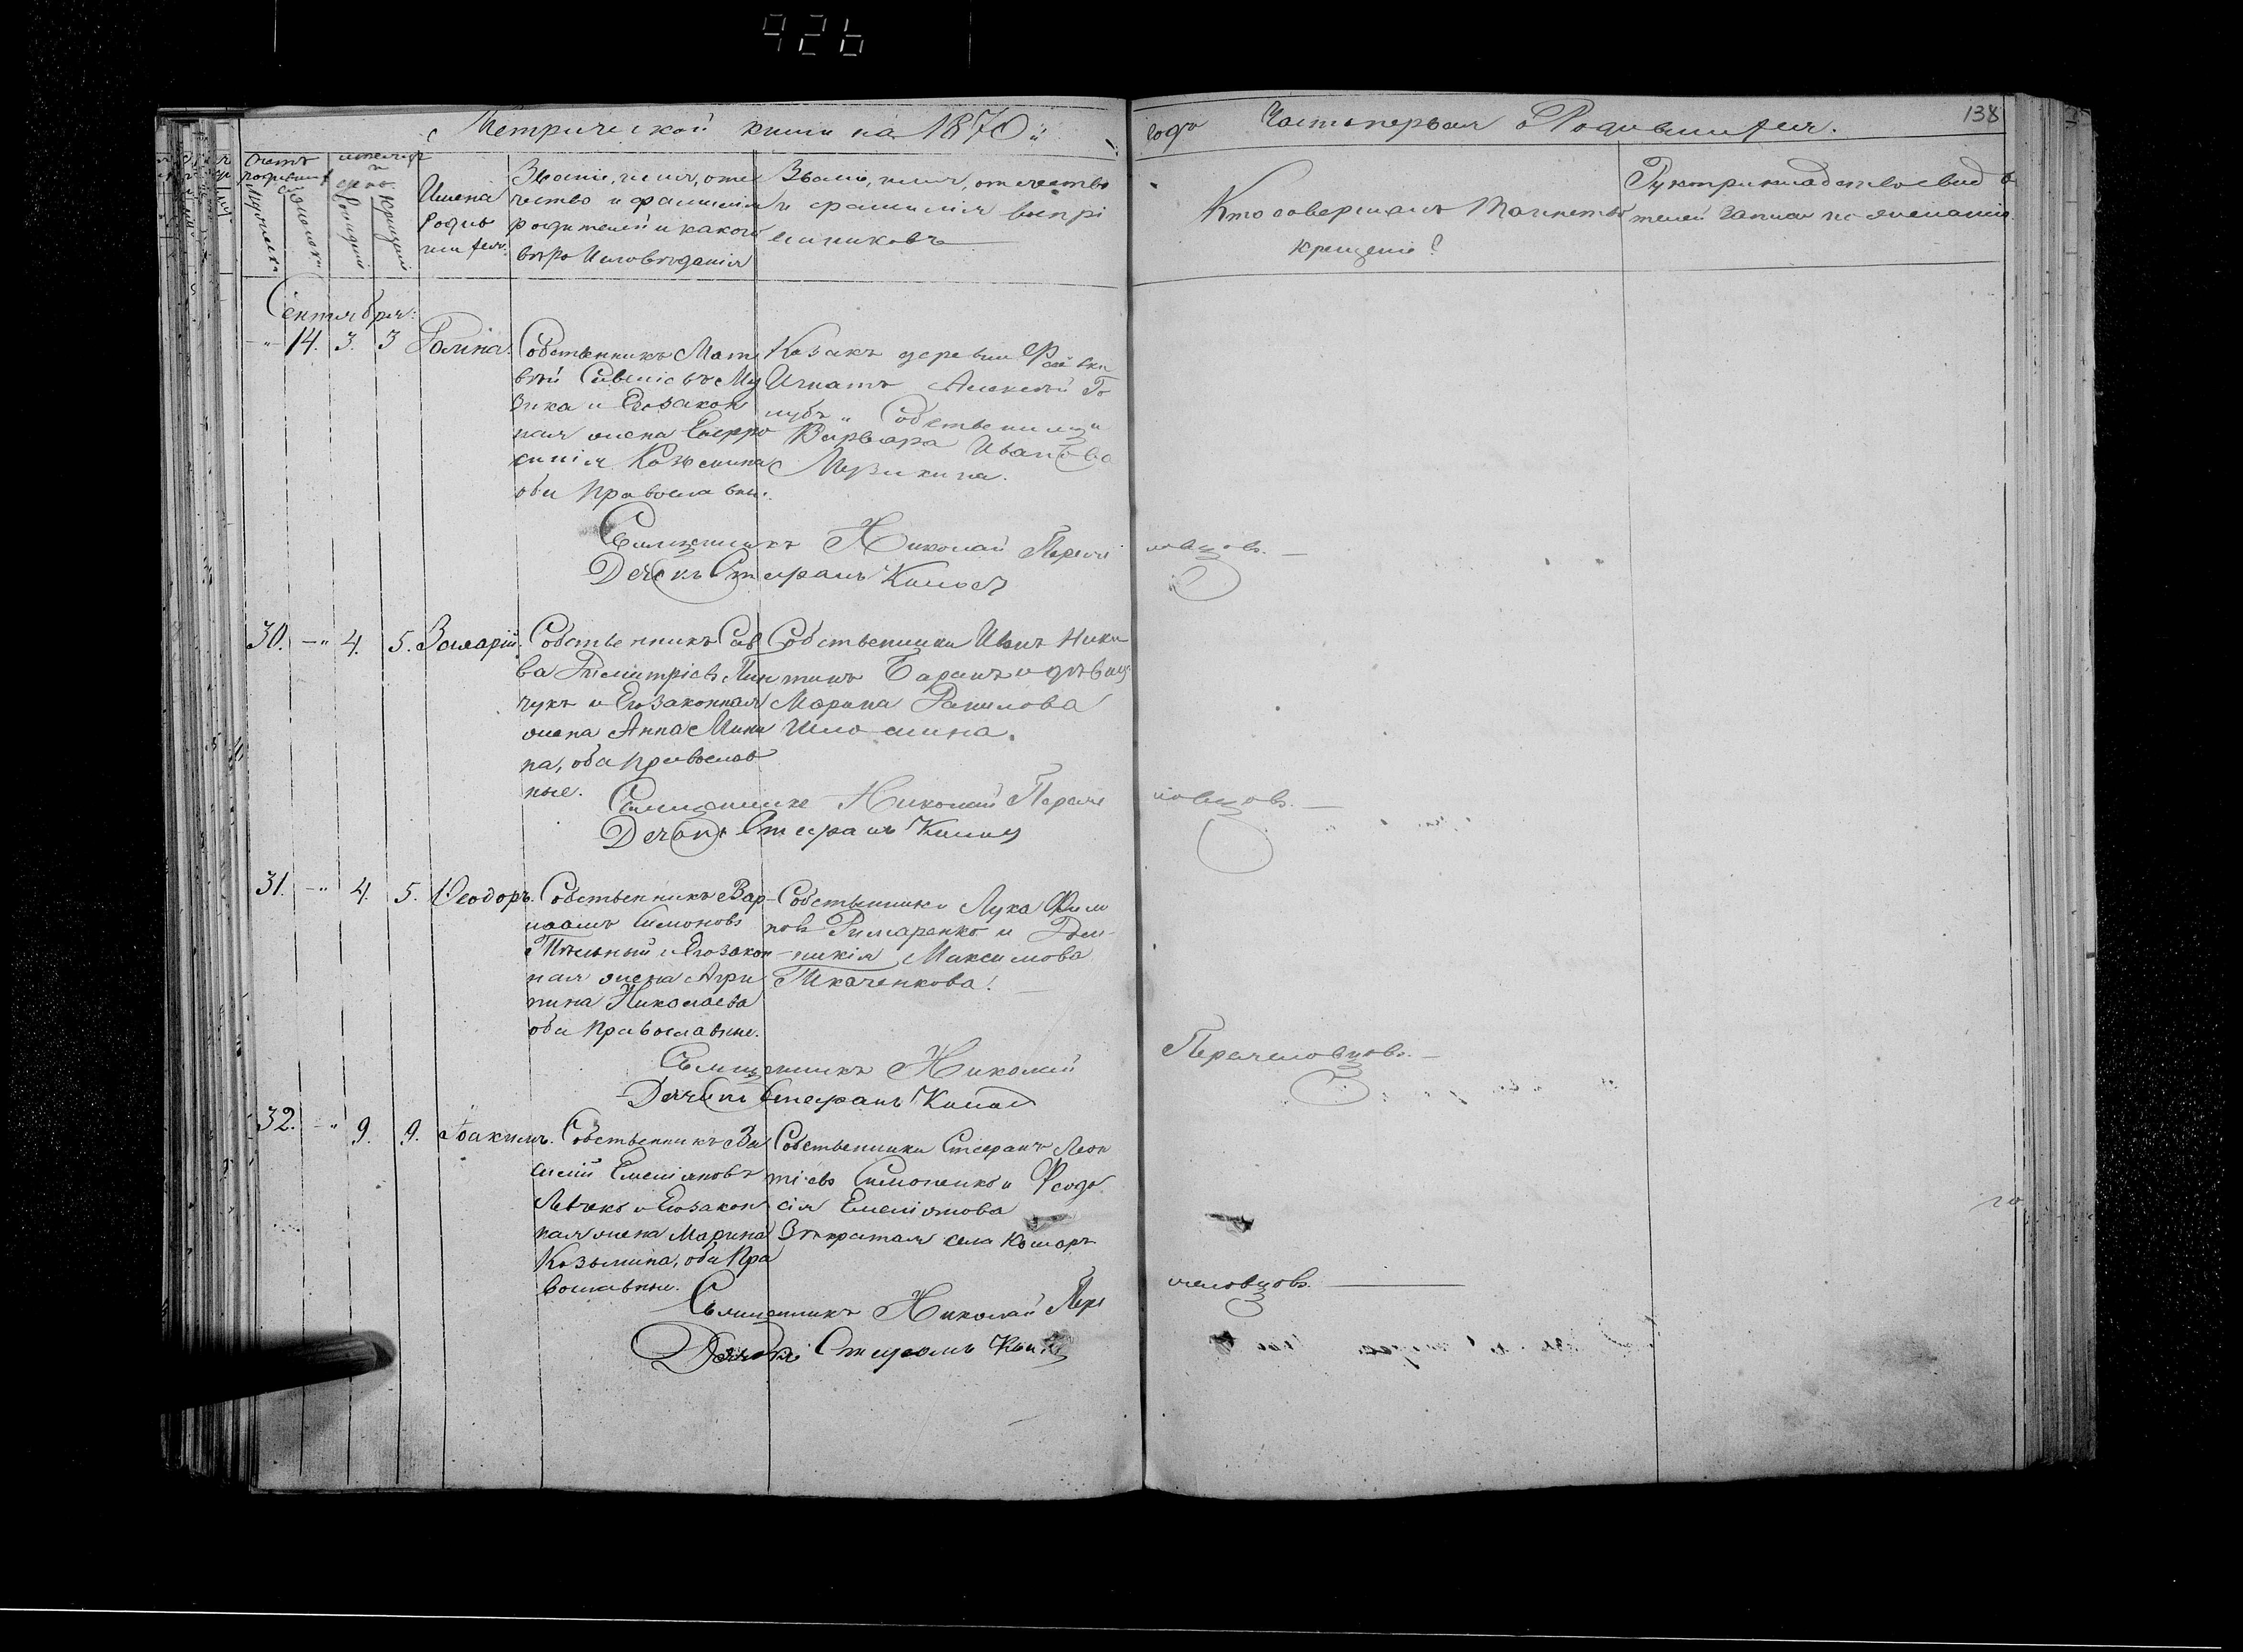 926
Метрической книги на 1870й
годъ Часть первая о Родившихся.
138
Счетъ родившихся
Мужеска
Женска
Месяцъ и день
рожденія
крещенія
Имена
родив
шихся.
Званіе, имя, оте
чество и фамилія
родителей и какого
вѣроисповѣданія
Званіе, имя, отечество
и фамилія воспрі
емниковъ
Кто совершалъ таинство
крещенія?
Рукоприкладство свидѣ
телей записи по желанію.
Сентября:
-"- 14. 3. 3 Галина.
Собственникъ Мат
вѣй Савеліевъ Му
зика и Его закон
ная жена Евфро
синія Козьмина
оба православны.
Козакъ деревни
Игнатъ Алексѣй Го
лубъ " Собственница
Варвара Иванова
Музикина.
Священникъ Николай Перече
ловцовъ.
Дячокъ Стефанъ
30. -" 4. 5.
Собственникъ Сав
ва Димитріевъ
чукъ и Его законная
жена Анна
на, оба православ
ные.
Собственники Иванъ Ники
тинъ Баранъ и дѣвица
Марина Данилова
Священникъ Николай Перече
ловцовъ.
Дячокъ Стефанъ
31. -" 4. 5. Ѳеодоръ.
Собственникъ Вар
лаамъ Симоновъ
и Его закон
ная жена Агри
пина Николаева
оба православные.
Собственники Лука Фили
повъ Римаренко и
Максимова
Ткаченкова.
Священникъ Николай
Перечеловцовъ.
Дячокъ Стефанъ
32. -" 9. 9. Іоакимъ.
Собственникъ Ва
силій Емеліяновъ
Левъко и Его закон
ная жена Марина
Козьмина, оба Пра
вославны.
Собственники Стефанъ Леон
тіевъ Симоненко и Ѳеодо
сія Емеліянова
села
Священникъ Николай Пере
человцовъ.
Дячокъ Стефанъ